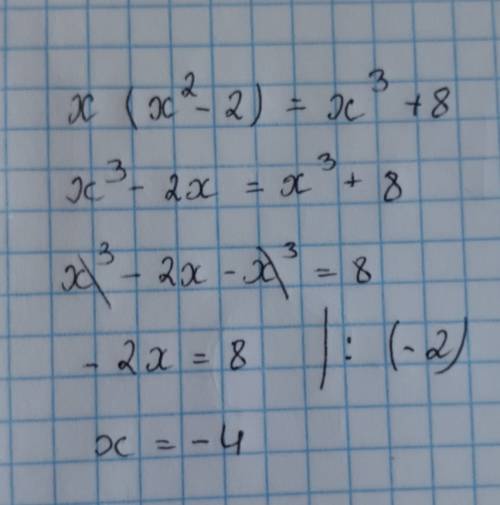 x (x² - 2) = x³ + 8
x³ - 2x = x³ + 8
x³ - 2x - x³ = 8
- 2x = 8 | : (-2)
x = -4